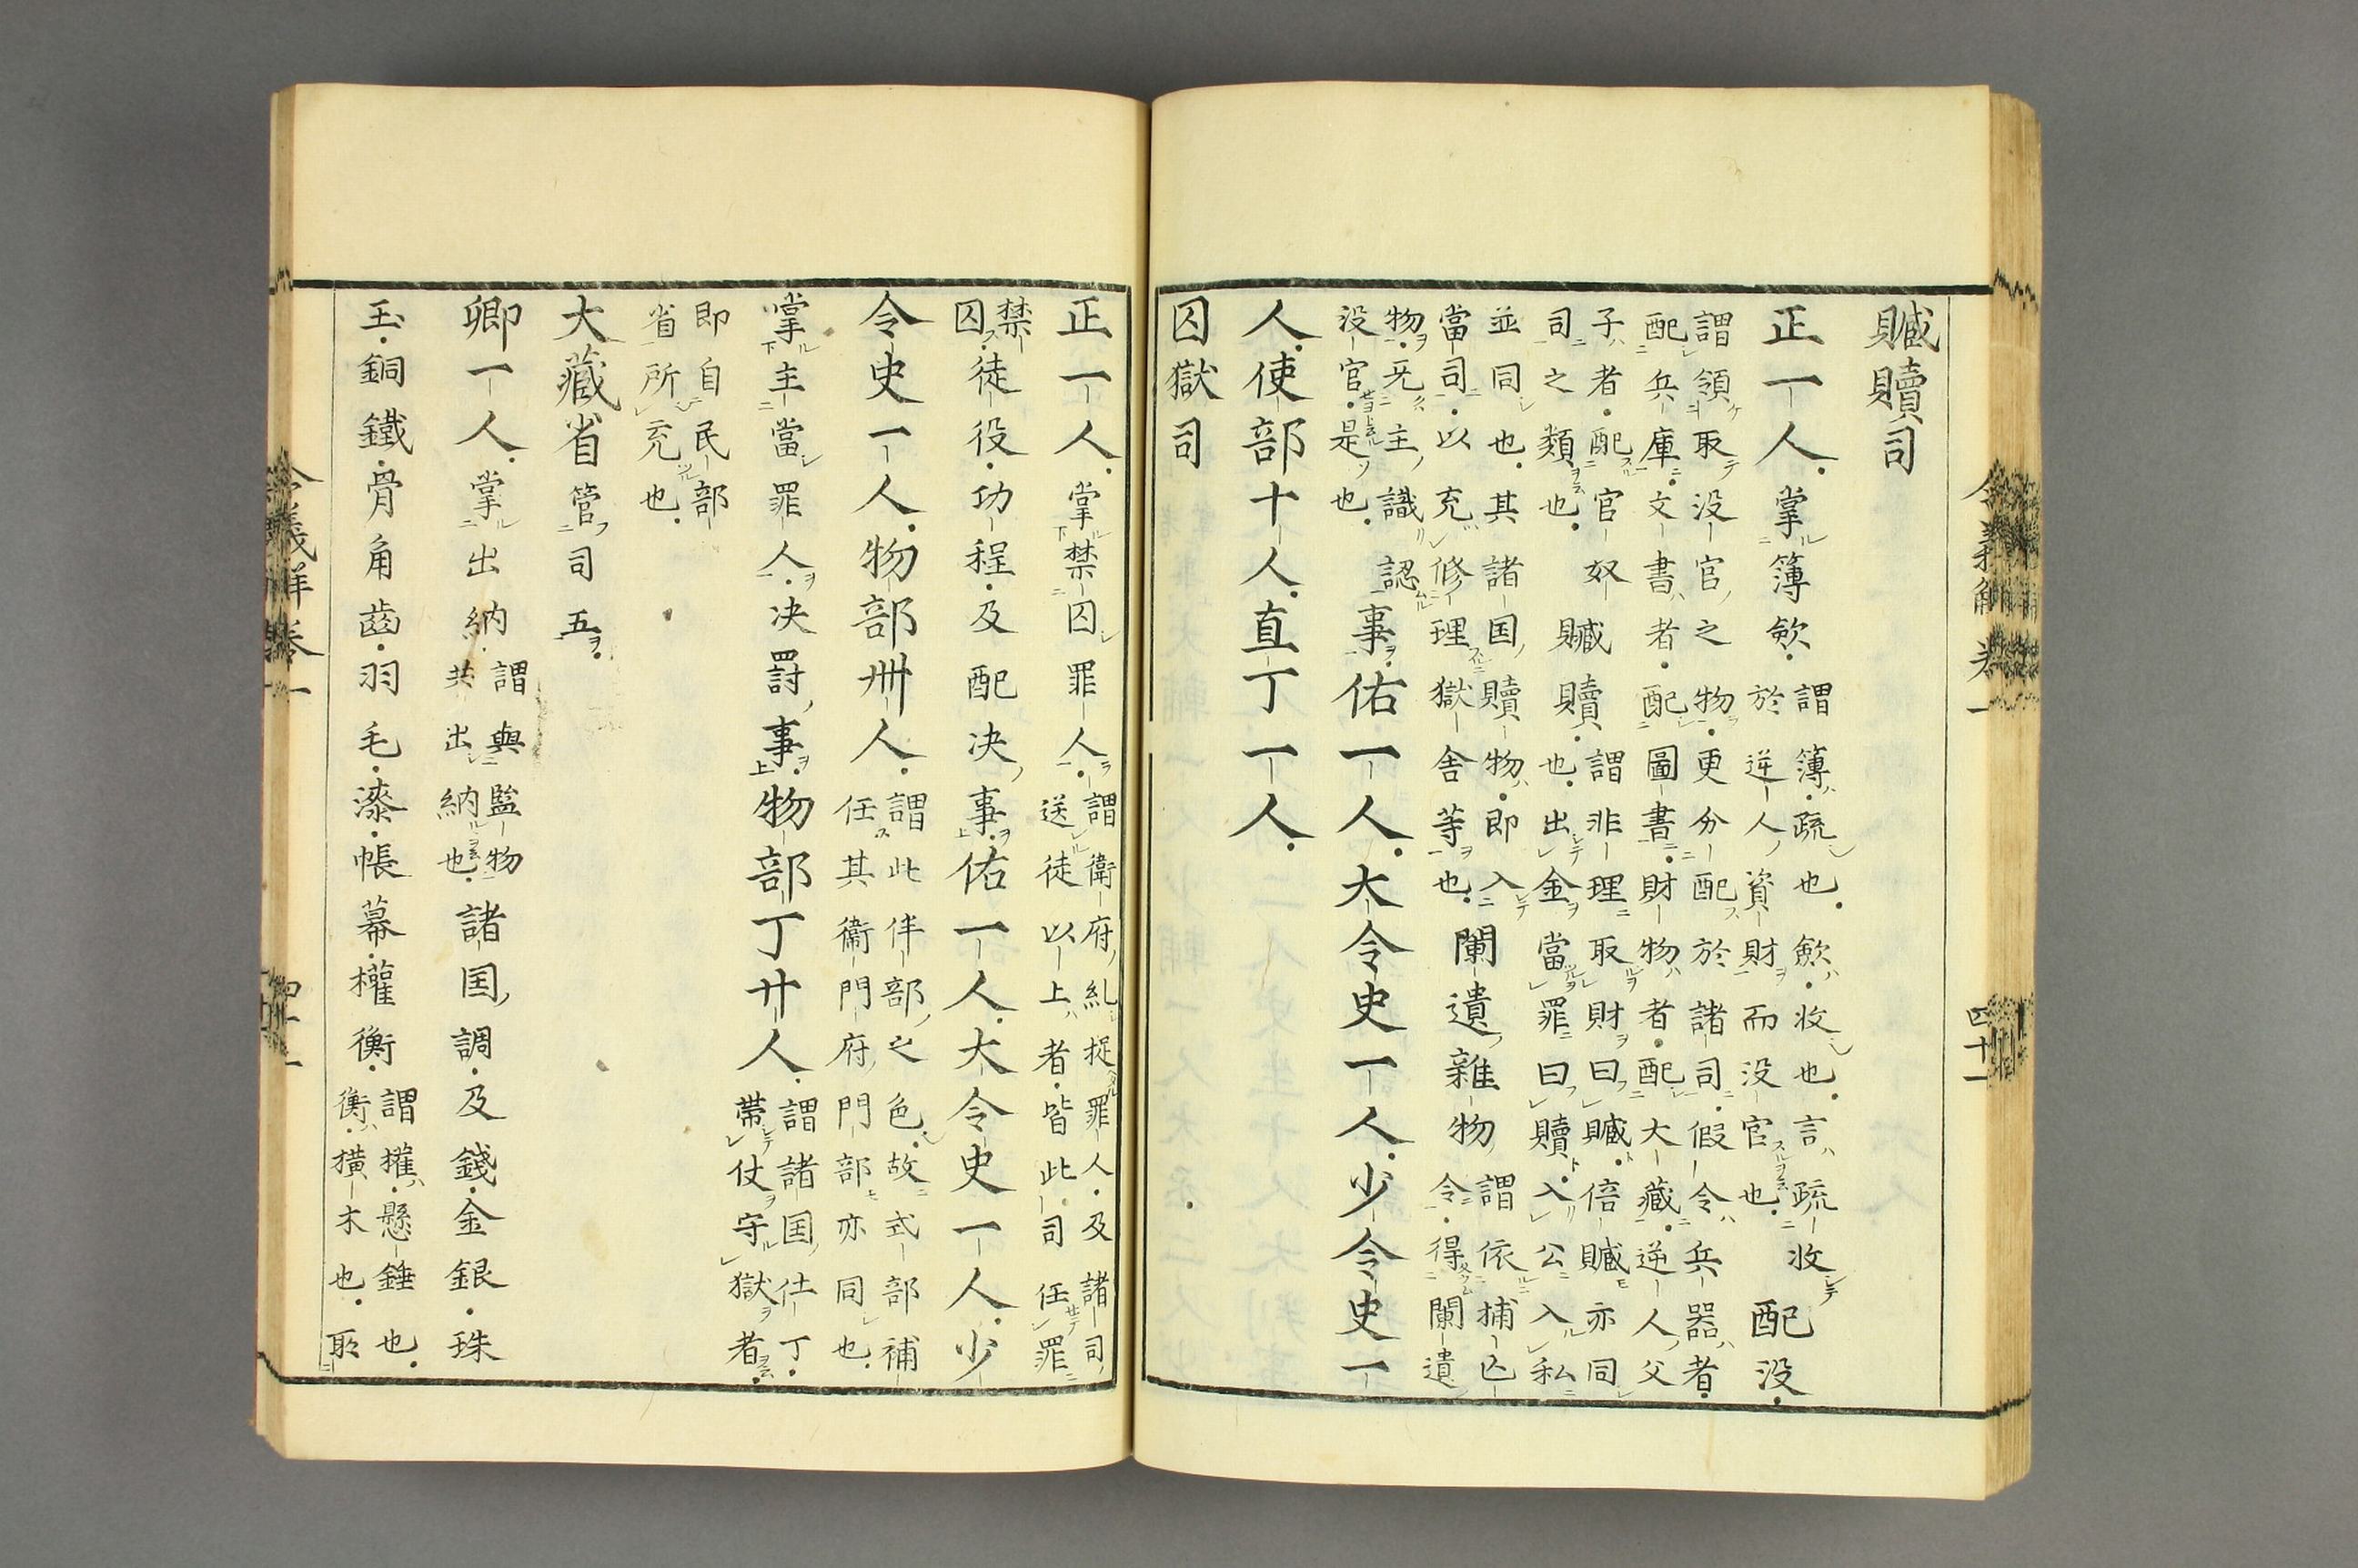 令義解卷一 四十一
贓贖司
正一人。掌簿斂。謂簿。疏也。斂。收也。言疏收
於逆人資財而没官也。
配没。
謂領取没官之物。更分配於諸司。假令兵器者。
配兵庫。文書者。配圖書。財物者。配大藏。逆人父
子者。配官奴
司之類也。
贓贖。謂非理取財曰贓。倍贓亦同
也。出金當罪曰贖。入公入私
並同也。其諸国贖物。即入
當司。以充修理獄舎等也。
闌遺雜物謂依捕亡
令。得闌遺
物。无主識認
没官。是也。
事。佑一人。大令史一人。少令史一
人。使部十人。直丁一人。
囚獄司
正一人。掌禁囚罪人。謂衛府糺捉罪人。及諸司
送徒以上者。皆此司任罪
禁
囚。
徒役。功程。及配决事。佑一人。大令史一人。少
令史一人。物部卌人。謂此伴部之色。故式部補
任其衛門府門部亦同也。
掌主當罪人。决罸事。物部丁廿人。謂諸国仕丁。
帶仗守獄者。
即自民部
省所充也。
大藏省管司五。
卿一人。掌出納謂與監物
共出納也。
諸国調。及錢。金銀。珠
玉。銅鐵。骨角齒。羽毛。漆。帳幕。權衡。謂權。懸錘也。
衡。横木也。耴
令義解卷一